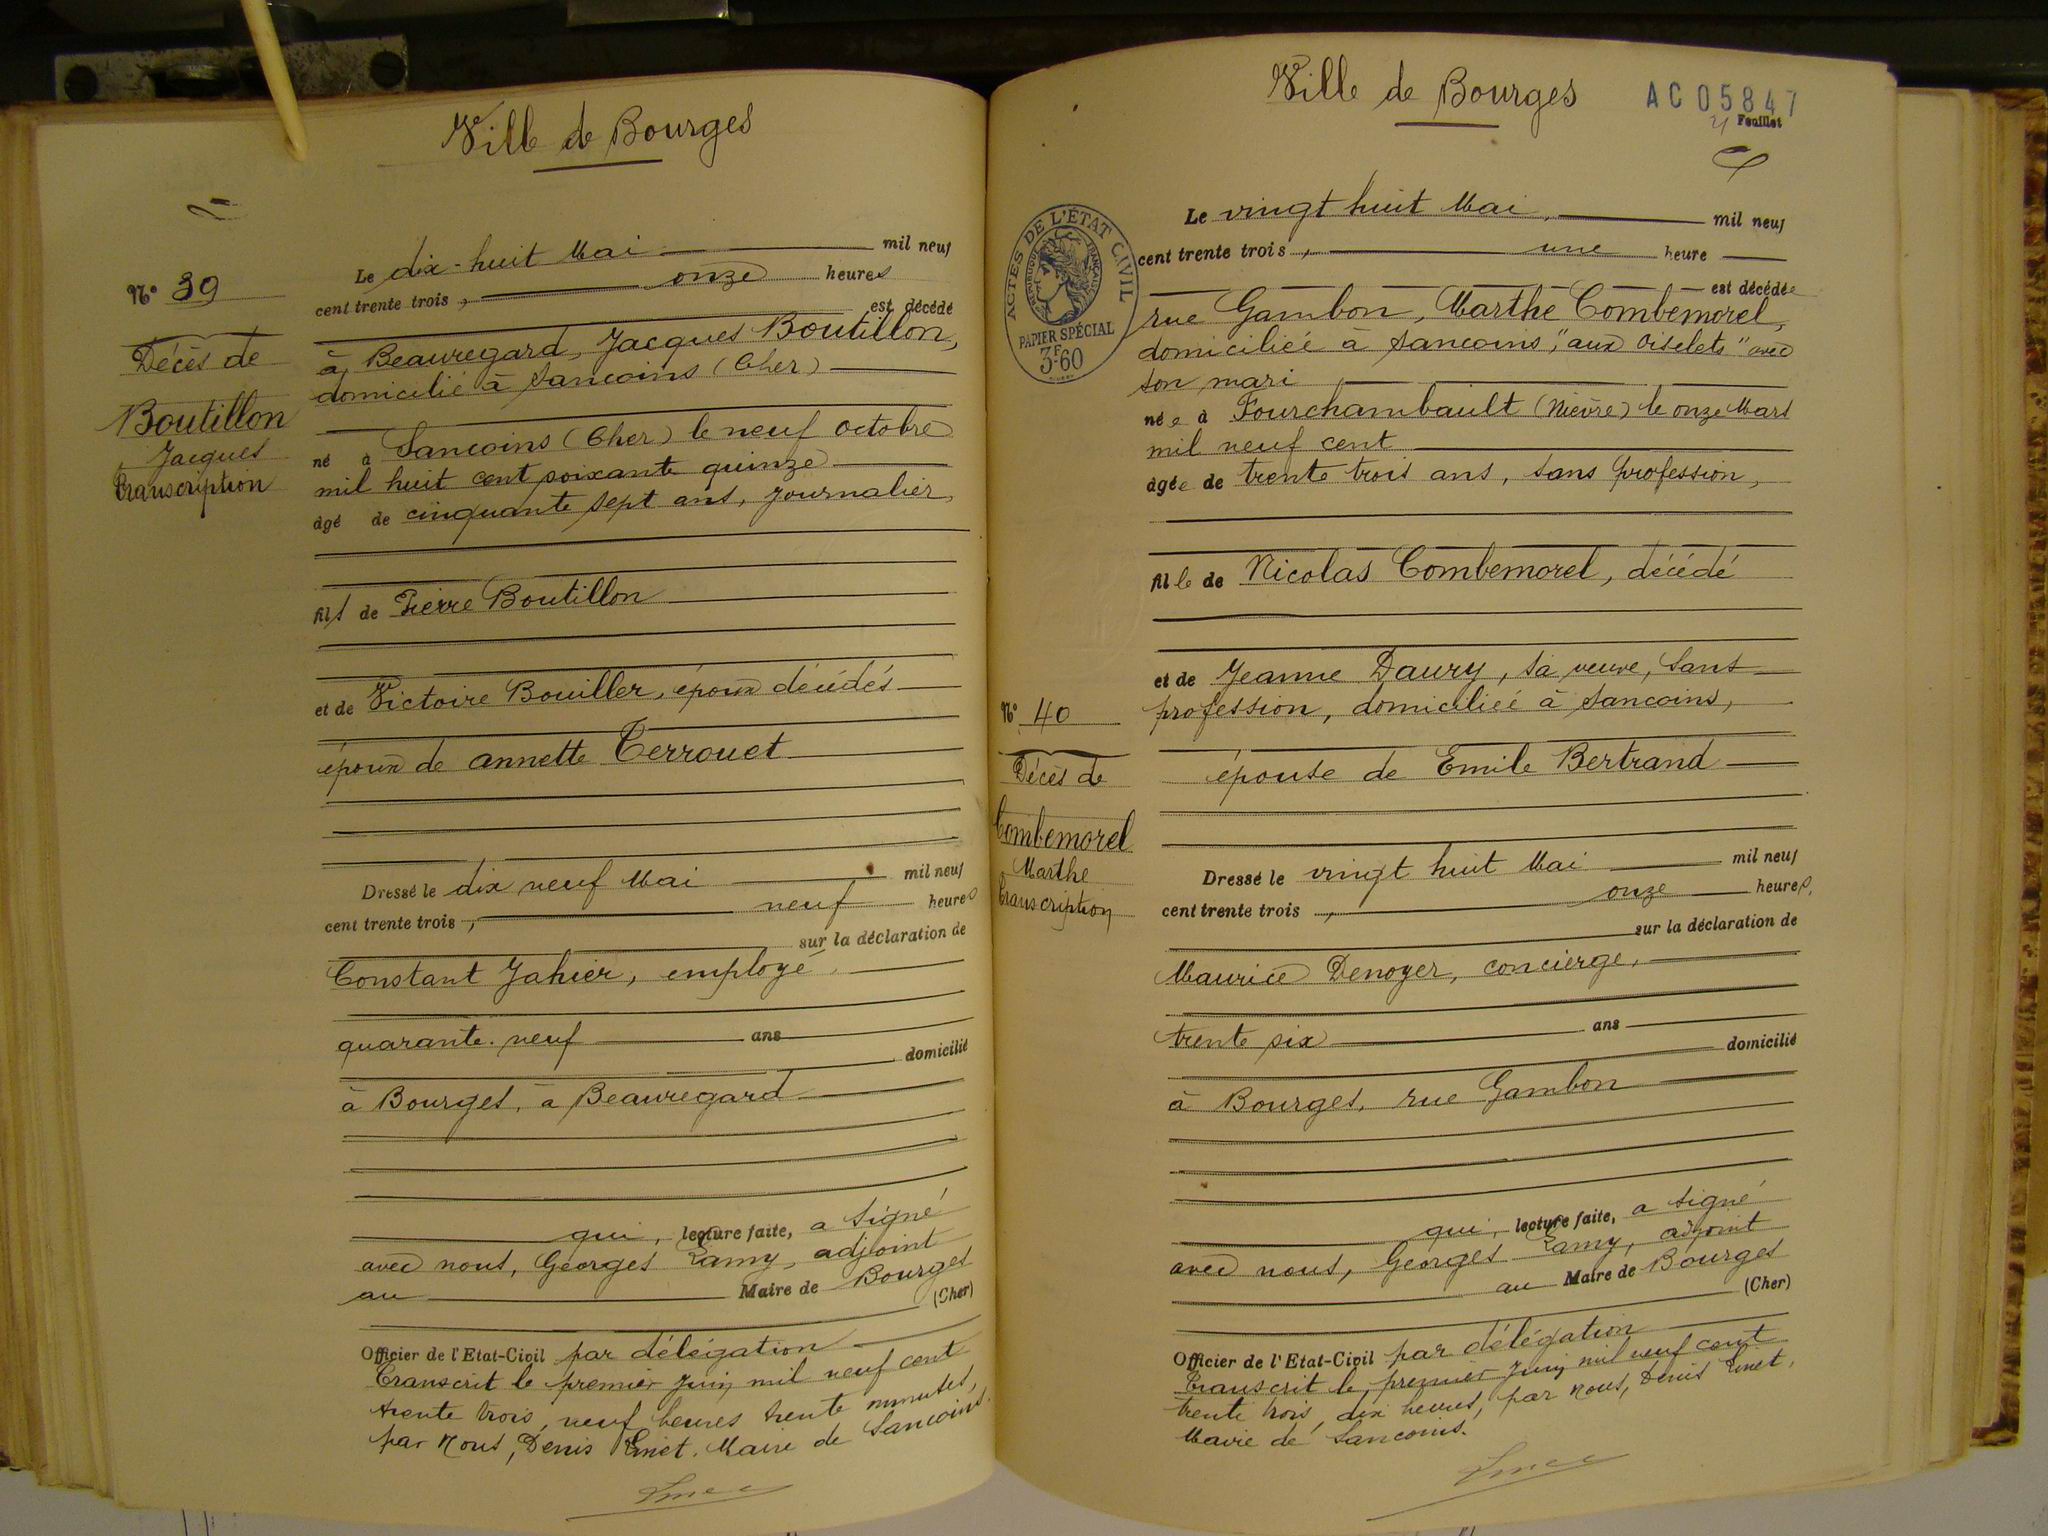 Ville de Bourges
Le dix-huit Mai mil neuf
N° 39
cent trente trois, onze heures
est décédé
Décès de
à Beauregard, Jacques Boutillon,
domicilié à Sancoins (Cher)
Boutillon
Jacques
Transcription
né à Sancoins (Cher) le neuf octobre
mil huit cent soixante quinze
âgé de cinquante sept ans, journalier,
fils de Pierre Boutillon
et de Victoire Bouiller, époux décédés
époux de Annette Terrouet
Dressé le dix neuf Mai mil neuf
cent trente trois, neuf heures
sur la déclaration de
Constant Jahier, employé,
quarante-neuf ans
domicilié
à Bourges, à Beauregard
qui, lecture faite, a signé
avec nous, Georges Lamy, adjoint
au Maire de Bourges
(Cher)
Officier de l'Etat-Civil par délégation
Transcrit le premier Juin mil neuf cent
trente trois, neuf heures trente minutes,
par Nous, Denis Maire de Sancoins.
Ville de Bourges
AC 05847
Feuillet
Le vingt huit Mai, mil neuf
cent trente trois, une heure
est décédée
rue Gambon, Marthe Combemorel,
domiciliée à Sancoins, "aux Oiselets" avec
son mari
née à Fourchambault (Nièvre) le onze Mars
mil neuf cent
âgée de trente trois ans, sans profession,
ACTES DE L'ÉTAT CIVIL
RÉPUBLIQUE FRANÇAISE
PAPIER SPÉCIAL
3F60
fille de Nicolas Combemorel, décédé
et de Jeanne Daury, sa veuve, sans
profession, domiciliée à Sancoins,
N° 40
épouse de Emile Bertrand
Décès de
Combemorel
Marthe
Transcription
Dressé le vingt huit Mai mil neuf
cent trente trois, onze heures,
sur la déclaration de
Maurice Denoyer, concierge,
trente six ans
domicilié
à Bourges, rue Gambon
qui, lecture faite, a signé
avec nous, Georges Lamy, adjoint
au Maire de Bourges
(Cher)
Officier de l'Etat-Civil par délégation
Transcrit le premier Juin mil neuf cent
trente trois, dix heures, par Nous, Denis
Maire de Sancoins.